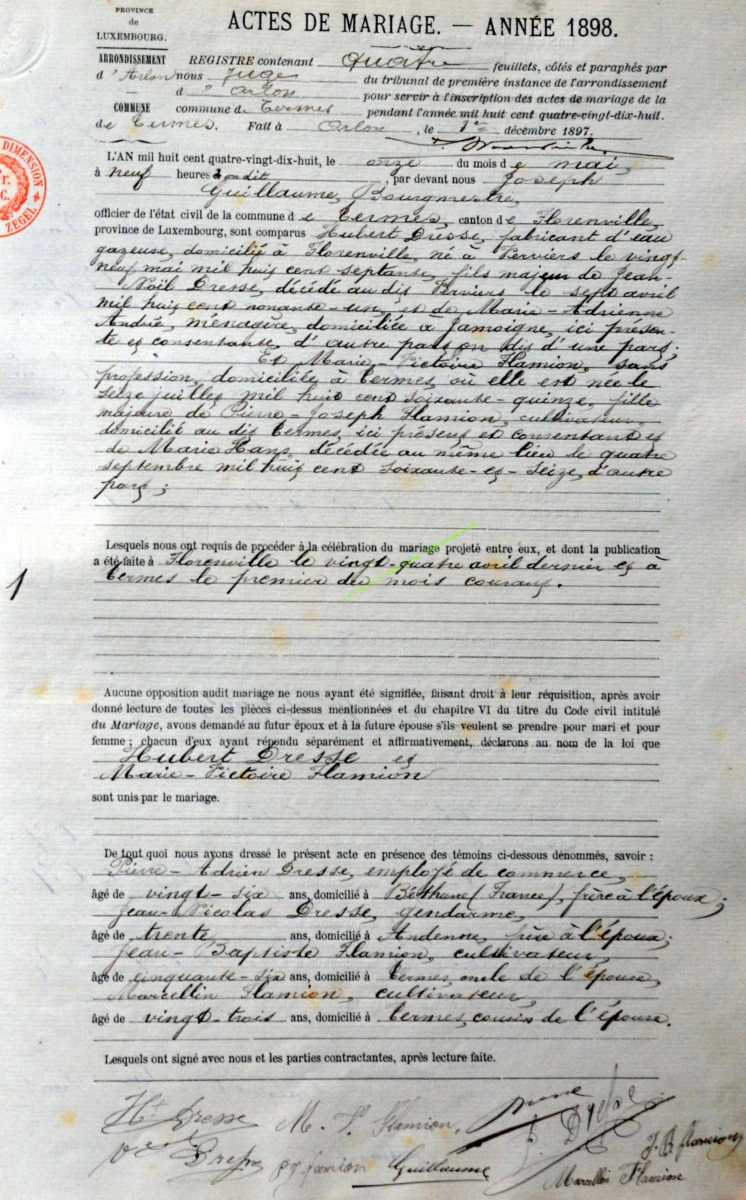 PROVINCE
de
LUXEMBOURG.
ARRONDISSEMENT
d'Arlon
COMMUNE
de Termes.
ACTES DE MARIAGE. — ANNÉE 1898.
REGISTRE contenant Quatre feuillets, côtés et paraphés par
nous Juge du tribunal de première instance de l'arrondissement
d'Arlon pour servir à l'inscription des actes de mariage de la
commune de Termes pendant l'année mil huit cent quatre-vingt-dix-huit.
Fait à Arlon, le 1er décembre 1897.
DIMENSION
ZEGEL
L'AN mil huit cent quatre-vingt-dix-huit, le onze du mois de mai,
à neuf heures par devant nous Joseph
Guillaume, Bourgmestre,
officier de l'état civil de la commune de Termes, canton de Florenville,
province de Luxembourg, sont comparus Hubert Dresse, fabricant d'eau
gazeuse, domicilié à Florenville, né à Verviers le vingt-
neuf mai mil huit cent septante, fils majeur de Jean
Noël Dresse, décédé au dit Verviers le sept avril
mil huit cent nonante-un et de Marie-Adrienne
André, ménagère, domiciliée à Jamoigne, ici présen-
te et consentante, d'autre part on dit d'une part;
Et Marie-Victoire Flamion, sans
profession, domiciliée à Termes, où elle est née le
seize juillet mil huit cent soixante-quinze, fille
majeure de Pierre-Joseph Flamion, cultivateur,
domicilié au dit Termes, ici présent et consentant et
de Marie Hans, décédée au même lieu le quatre
septembre mil huit cent soixante-et-seize, d'autre
part;
Lesquels nous ont requis de procéder à la célébration du mariage projeté entre eux, et dont la publication
a été faite à Florenville le vingt-quatre avril dernier et à
Termes le premier du mois courant.
1
Aucune opposition audit mariage ne nous ayant été signifiée, faisant droit à leur réquisition, après avoir
donné lecture de toutes les pièces ci-dessus mentionnées et du chapitre VI du titre du Code civil intitulé
du Mariage, avons demandé au futur époux et à la future épouse s'ils veulent se prendre pour mari et pour
femme; chacun d'eux ayant répondu séparément et affirmativement, déclarons au nom de la loi que
Hubert Dresse et
Marie-Victoire Flamion
sont unis par le mariage.
De tout quoi nous ayons dressé le présent acte en présence des témoins ci-dessous dénommés, savoir :
Pierre-Adrien Dresse, employé de commerce,
âgé de vingt-six ans, domicilié à Béthune (France), frère à l'époux;
Jean-Nicolas Dresse, gendarme,
âgé de trente ans, domicilié à Andenne, frère à l'époux;
Jean-Baptiste Flamion, cultivateur,
âgé de cinquante-six ans, domicilié à Termes, oncle de l'épouse,
Marcellin Flamion, cultivateur,
âgé de vingt-trois ans, domicilié à Termes, cousin de l'épouse.
Lesquels ont signé avec nous et les parties contractantes, après lecture faite.
Ht Dresse M. V. Flamion,
J. B. flamion
Dresse pj flamion Guillaume
Marcellin Flamion